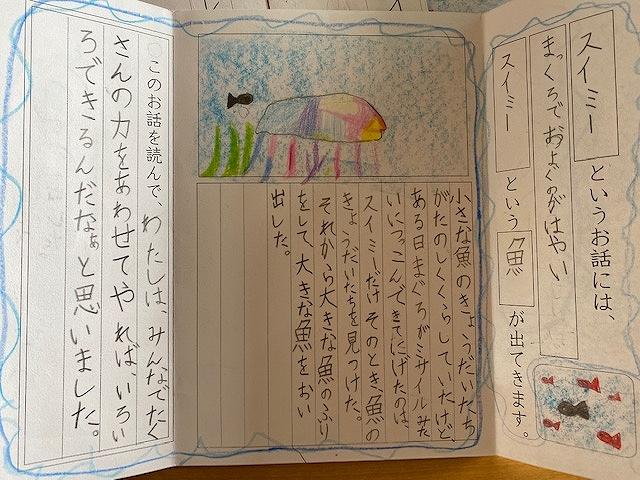 スイミー というお話には、
まっくろでおよぐのがはやい
スイミー という 魚 が出てきます。
小さな魚のきょうだいたち
がたのしくくらしていたけど、
ある日まぐろがミサイルみた
いにつっこんできてにげたのは、
スイミーだけ そのとき魚の
きょうだいたちを見つけた。
それから大きな魚のふり
をして、大きな魚をおい
出した。
このお話を読んで、わたしは、みんなでたく
さんの力をあわせてやれば、いろい
ろできるんだなぁと思いました。